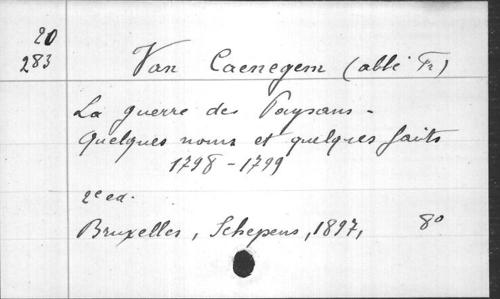 20
283
Van Caenegem (abbé Fr)
La guerre des Paysans -
Quelques noms et quelques faits
1798 - 1799
2e ed.
Bruxelles, Schepens, 1897, 8º